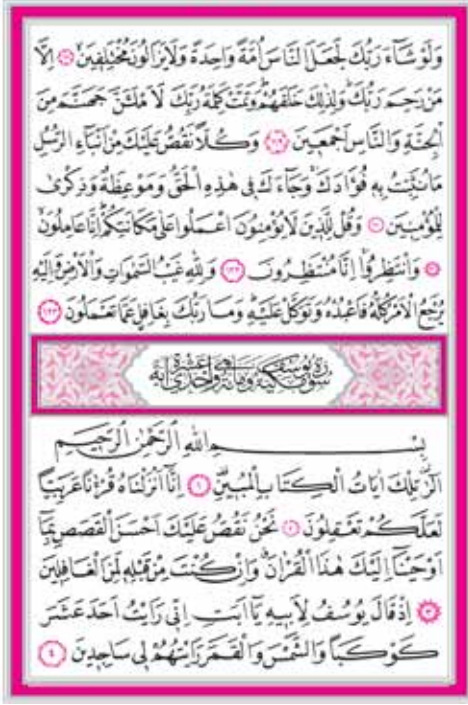 وَلَوْ شَٓاءَ رَبُّكَ لَجَعَلَ النَّاسَ اُمَّةً وَاحِدَةً وَلَا يَزَالُونَ مُخْتَلِف۪ينَۙ ﴿١١٨﴾ اِلَّا
مَنْ رَحِمَ رَبُّكَۜ وَلِذٰلِكَ خَلَقَهُمْۜ وَتَمَّتْ كَلِمَةُ رَبِّكَ لَاَمْلَـَٔنَّ جَهَنَّمَ مِنَ
الْجِنَّةِ وَالنَّاسِ اَجْمَع۪ينَ ﴿١١٩﴾ وَكُلًّا نَقُصُّ عَلَيْكَ مِنْ اَنْبَٓاءِ الرُّسُلِ
مَا نُثَبِّتُ بِه۪ فُؤٰادَكَۚ وَجَٓاءَكَ ف۪ي هٰذِهِ الْحَقُّ وَمَوْعِظَةٌ وَذِكْرٰى
لِلْمُؤْمِن۪ينَ ﴿١٢٠﴾ وَقُلْ لِلَّذ۪ينَ لَا يُؤْمِنُونَ اعْمَلُوا عَلٰى مَكَانَتِكُمْۜ اِنَّا عَامِلُونَۙ
﴿١٢١﴾ وَانْتَظِرُواۚ اِنَّا مُنْتَظِرُونَ ﴿١٢٢﴾ وَلِلّٰهِ غَيْبُ السَّمٰوَاتِ وَالْاَرْضِ وَاِلَيْهِ
يُرْجَعُ الْاَمْرُ كُلُّهُ فَاعْبُدْهُ وَتَوَكَّلْ عَلَيْهِۜ وَمَا رَبُّكَ بِغَافِلٍ عَمَّا تَعْمَلُونَ ﴿١٢٣﴾
سورة يوسف مكية وهي مائة واحدى عشرة آية
بِسْمِ اللّٰهِ الرَّحْمٰنِ الرَّح۪يمِ
الٓرٰ۠ تِلْكَ اٰيَاتُ الْكِتَابِ الْمُب۪ينِ۠ ﴿١﴾ اِنَّٓا اَنْزَلْنَاهُ قُرْءٰنًا عَرَبِيًّا
لَعَلَّكُمْ تَعْقِلُونَ ﴿٢﴾ نَحْنُ نَقُصُّ عَلَيْكَ اَحْسَنَ الْقَصَصِ بِمَٓا
اَوْحَيْنَٓا اِلَيْكَ هٰذَا الْقُرْاٰنَۗ وَاِنْ كُنْتَ مِنْ قَبْلِه۪ لَمِنَ الْغَافِل۪ينَ
﴿٣﴾ اِذْ قَالَ يُوسُفُ لِاَب۪يهِ يَٓا اَبَتِ اِنّ۪ي رَاَيْتُ اَحَدَ عَشَرَ
كَوْكَبًا وَالشَّمْسَ وَالْقَمَرَ رَاَيْتُهُمْ ل۪ي سَاجِد۪ينَ ﴿٤﴾